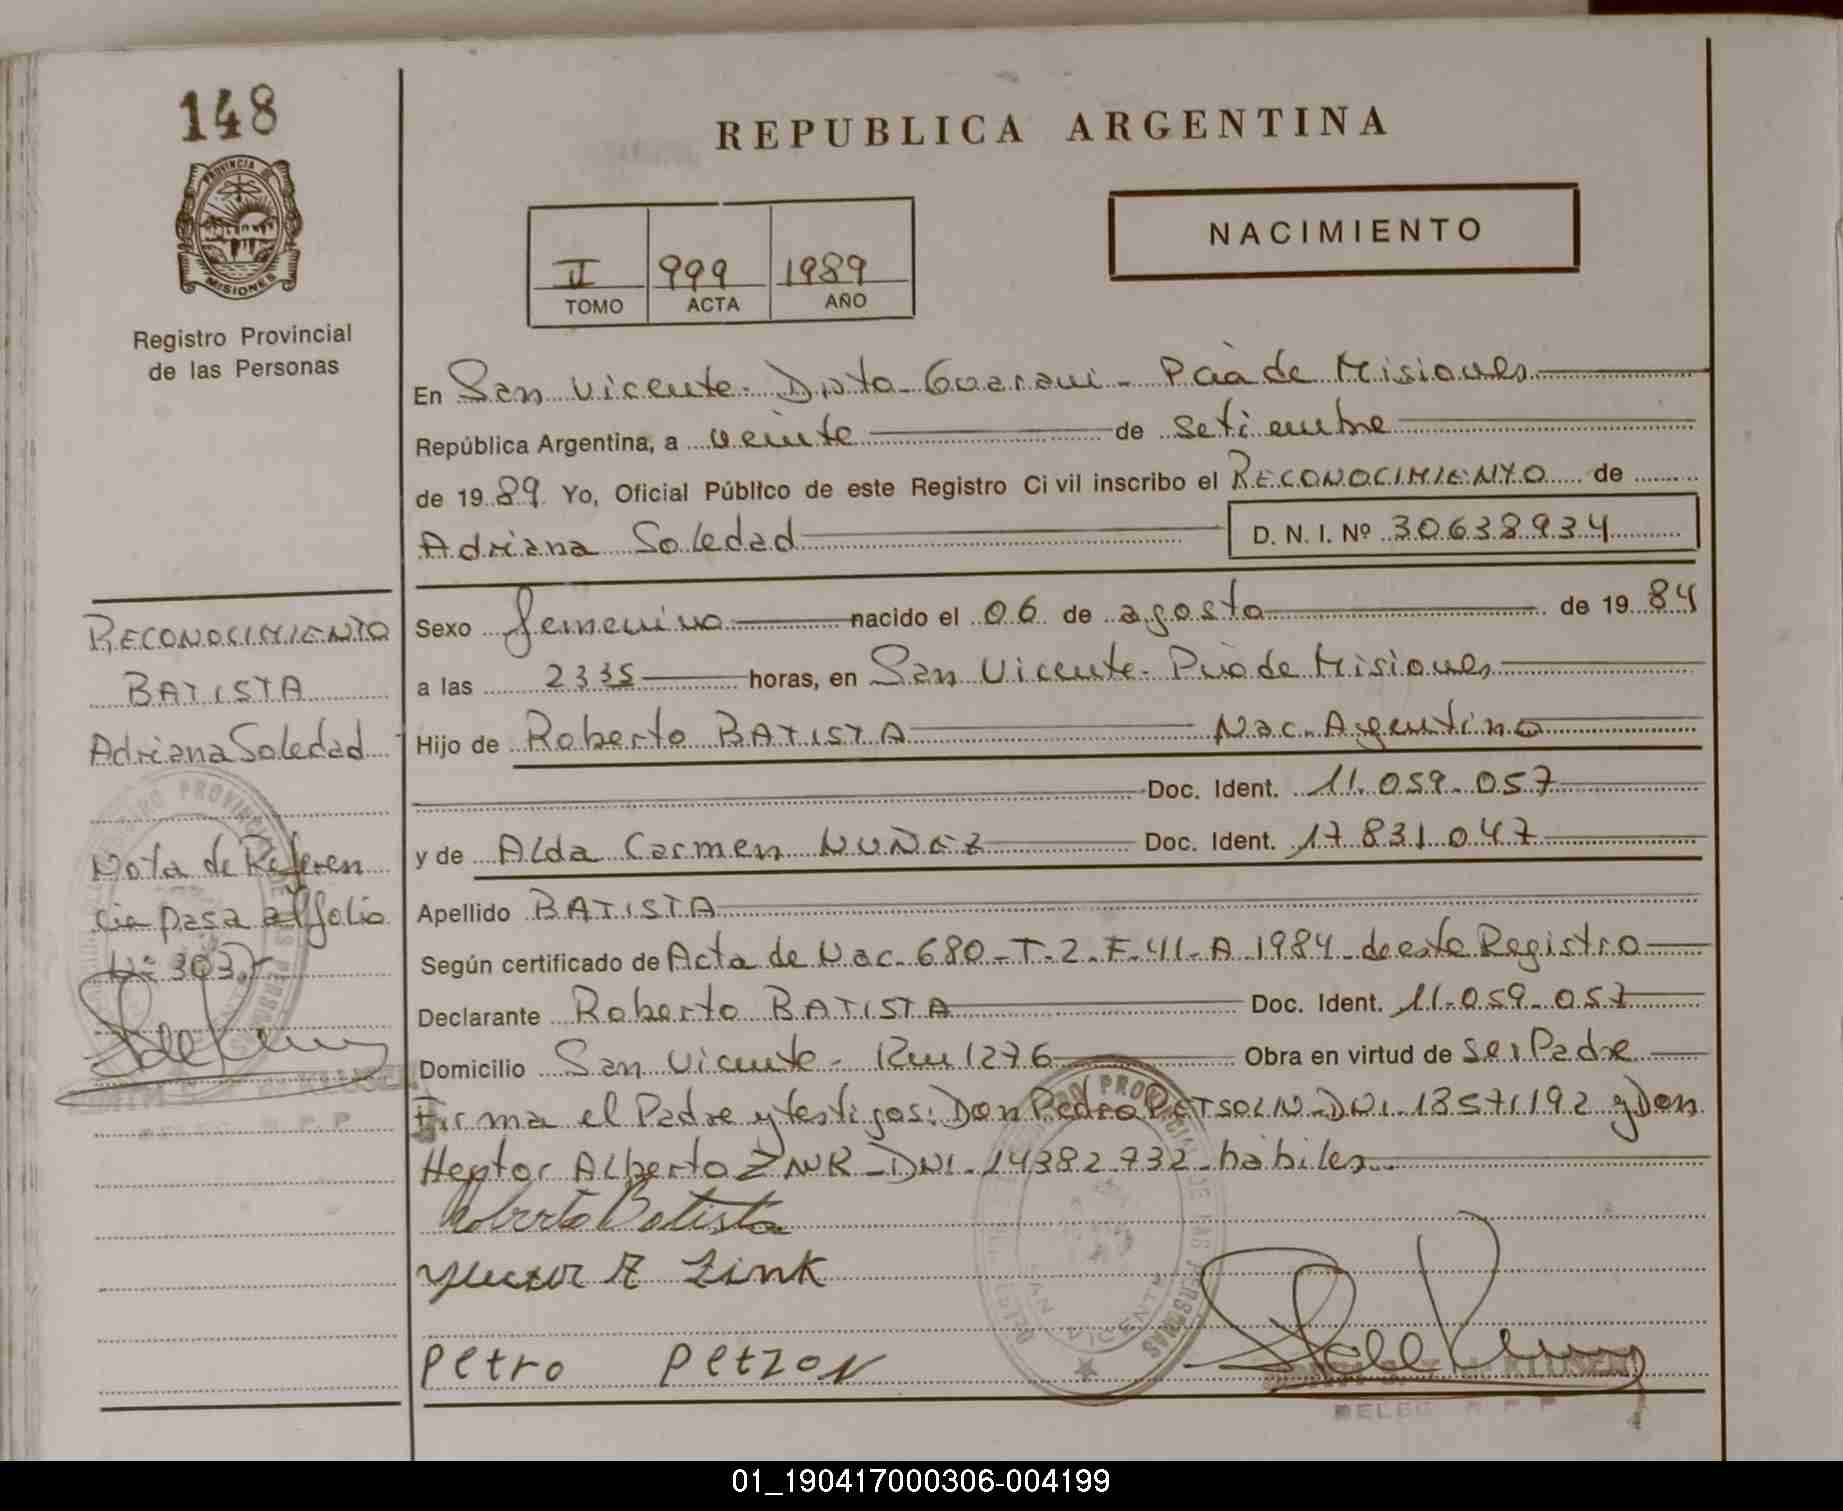 148
PROVINCIA DE
MISIONES
Registro Provincial
de las Personas
REPUBLICA ARGENTINA
II 999 1989
TOMO ACTA AÑO
NACIMIENTO
En San Vicente - Dpto - Guarani - Pcia de Misiones
República Argentina, a veinte de setiembre
de 1989 Yo, Oficial Público de este Registro Civil inscribo el RECONOCIMIENTO de
Adriana Soledad D. N. I. Nº 30638934
Sexo femenino nacido el 06 de agosto de 1984
a las 2335 horas, en San Vicente - Pcia de Misiones
Hijo de Roberto BATISTA Nac. Argentino
Doc. Ident. 11.059.057
y de Alda Carmen NUÑEZ Doc. Ident. 17.831.047
Apellido BATISTA
Según certificado de Acta de Nac. 680 - T. 2 - F. 41 - A. 1984 - de este Registro
Declarante Roberto BATISTA Doc. Ident. 11.059.057
Domicilio San Vicente - Km 1276 Obra en virtud de Ser Padre
Firma el Padre y testigos: Don Pedro - DNI - 13571192 y Don
Hector Alberto - DNI - 14382932 - habiles.
Roberto Batista
Hector A Zink
Petro Petzon
RECONOCIMIENTO
BATISTA
Adriana Soledad
Nota de Referen
cia pasa al folio
Nº 303
DELEG R P P
DELEG R P P
01_190417000306-004199